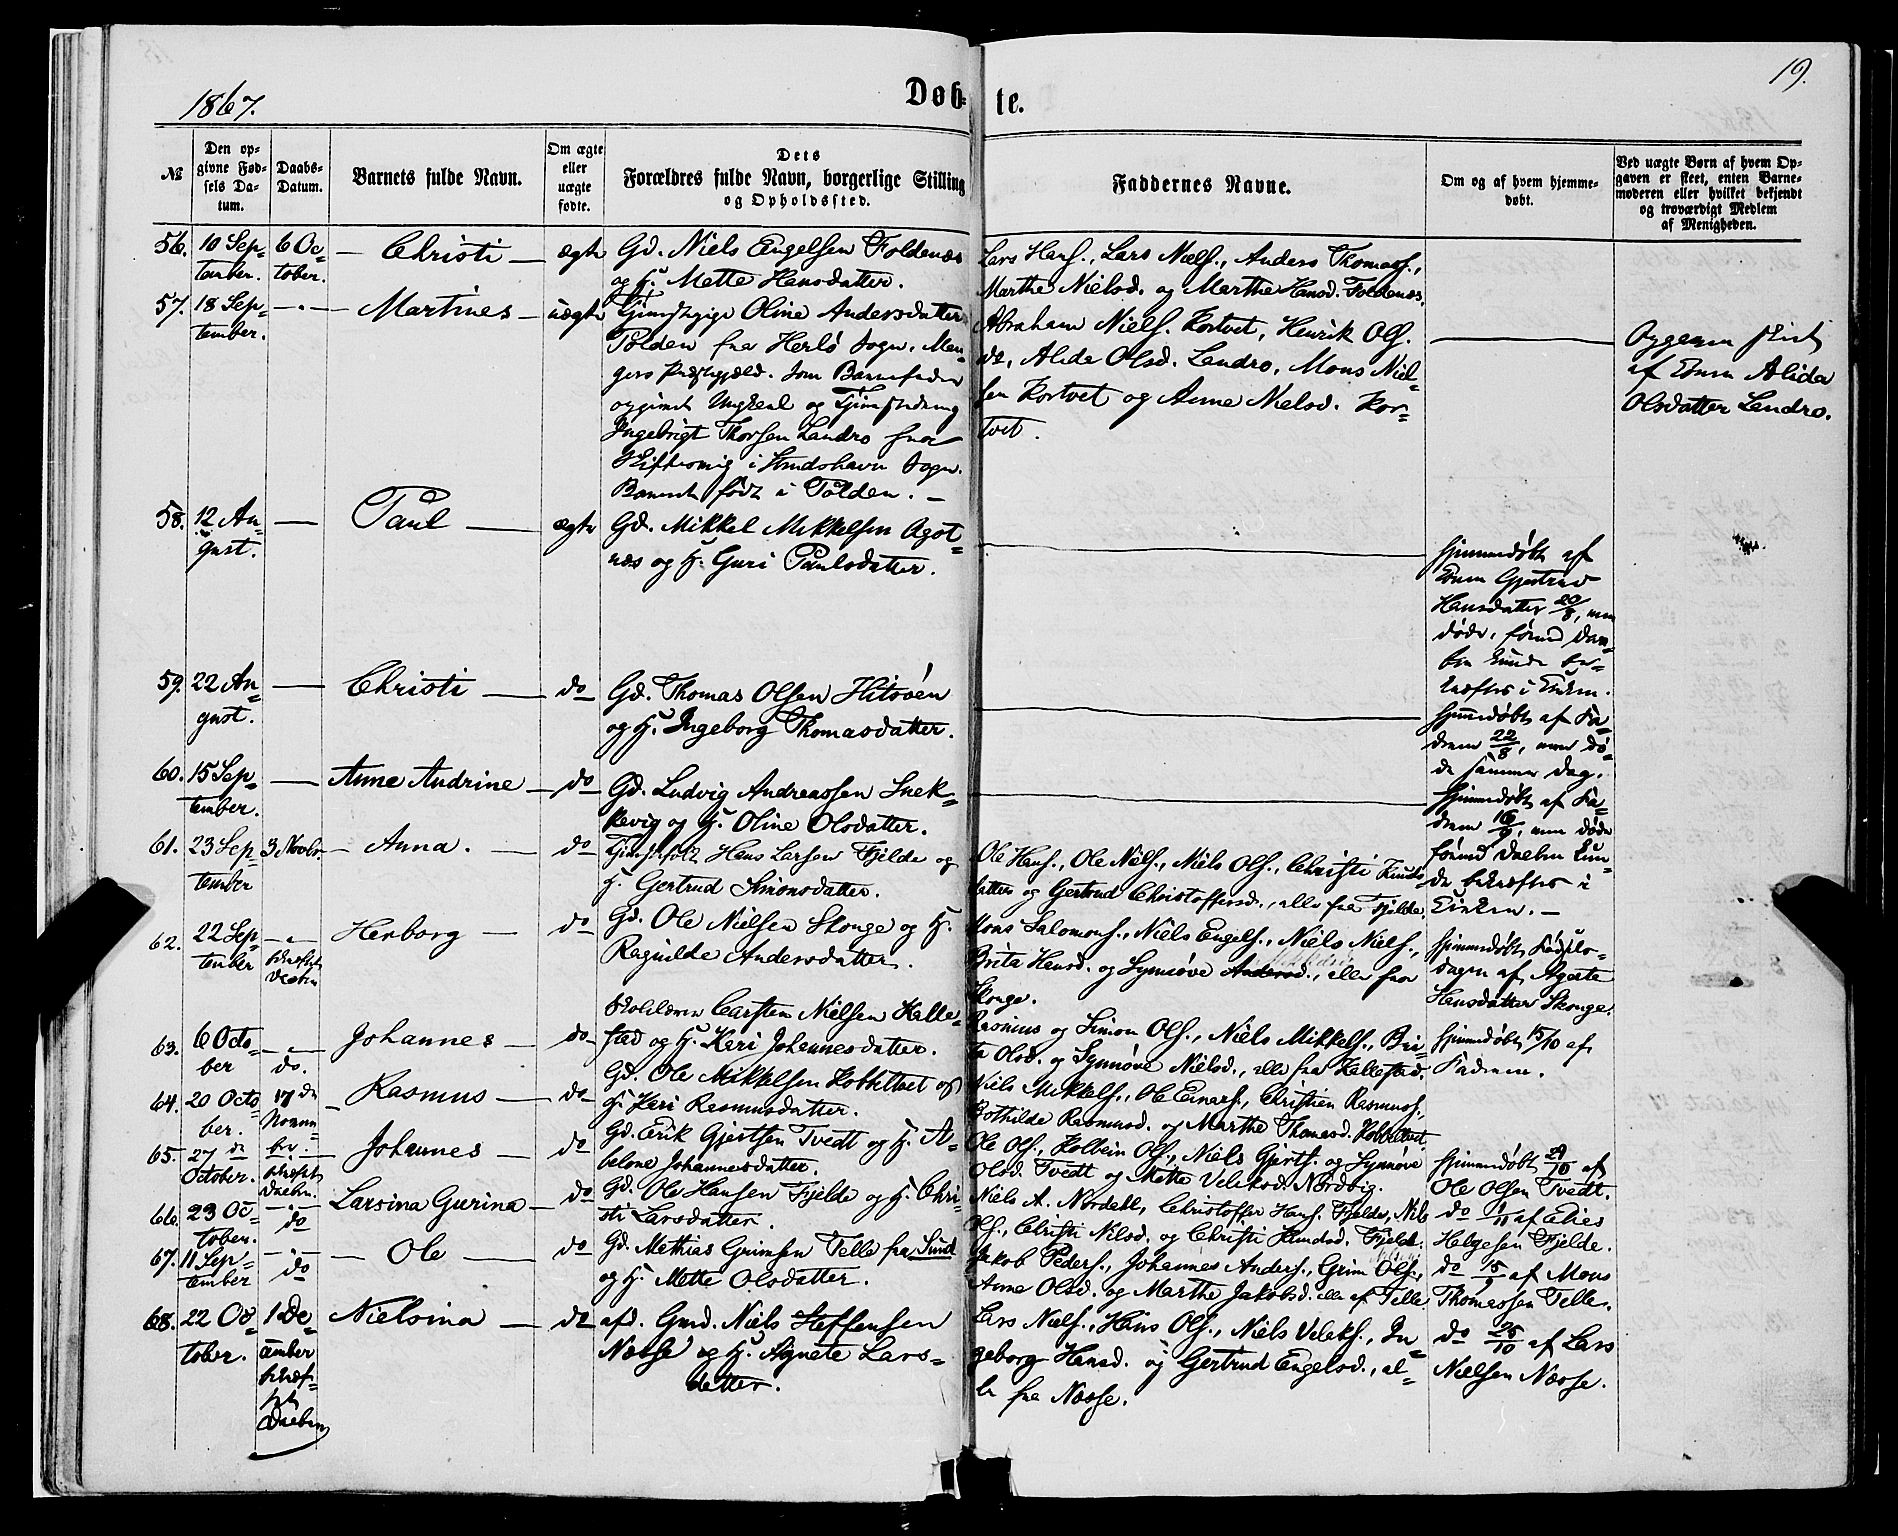 1867.
Døb-
te.
19.
№
Den op-
givne Fød-
sels Da-
tum.
Daabs-
Datum.
Barnets fulde Navn.
Om ægte
eller
uægte
fødte.
Dets
Forældres fulde Navn, borgerlige Stilling
og Opholdssted.
Faddernes Navne.
Om og af hvem hjemme-
døbt.
Ved uægte Børn af hvem Op-
gaven er skeet, enten Barne-
moderen eller hvilket bekjendt
og troværdigt Medlem
af Menigheden.
56.
10 Sep-
tember.
6 Oc-
tober.
Christi
ægte
Gd. Niels Engelsen Foldenæs
og H. Mette Hansdatter.
Lars Hans., Lars Niels., Anders Thomass.,
Marthe Nielsd. og Marthe Hansd. Foldenæs.
57.
18 Sep-
tember.
Martines
uægte
Oline Andersdatter
Tolden fra Herlø Sogn, Man-
gers Præstegjæld. Som Barnefader
opgivet Ungkarl og
Ingebrigt Thorsen Landro fra
i Sundshavn Sogn.
Barnet født i Tolden.
Abraham Niels. Kortvet, Henrik Ols.
do, Alida Olsd. Landro, Mons Niel-
sen Kortvet og Anne Nielsd. Kor-
tvet.
Opgaven skeet
af Alida
Olsdatter Landro.
58.
12 Au-
gust.
Paul
ægte
Gd. Mikkel Mikkelsen Agot-
næs og H. Guri Paulsdatter.
hjemmedøbt af
Konen Gjertrud
Hansdatter 20/8, men
døde, førend Daa-
ben kunde be-
kræftes i Kirken.
59.
22 Au-
gust.
Christi
do
Gd. Thomas Olsen Hitsøen
og H. Ingeborg Thomasdatter.
hjemmedøbt af Fa-
deren 22/8, men dø-
de samme Dag.
60.
15 Sep-
tember.
Anne Andrine
do
Gd. Ludvig Andreassen Snek-
kevig og H. Oline Olsdatter.
hjemmedøbt af Fa-
deren 16/9, men døde
førend Daaben kun-
de bekræftes i
Kirken.
61.
23 Sep-
tember
3 Novbr.
Anna.
do
Hans Larsen Fjelde og
H. Gertrud Simonsdatter.
Ole Hans., Ole Niels., Niels Ols., Christi Knuds-
datter og Gertrud Christoffersd., alle fra Fjelde.
62.
22 Sep-
tember
bekræftet
Daaben
Herborg
do
Gd. Ole Nielsen Skonge og H.
Ragnilde Andersdatter.
Mons Salomons., Niels Engels., Niels Niels.,
Brita Hansd. og Synnøve Andersd., alle fra
Skonge.
hjemmedøbt Fødsels-
dagen af Agate
Hansdatter Skonge.
63.
6 Octo-
ber
do.
Johannes
do
Skolelærer Carsten Nielsen Kalle-
stad og H. Kari Johannesdatter.
Rasmus og Simon Ols., Niels Mikkels., Bri-
ta Olsd. og Synnøve Nielsd., alle fra Kallestad.
hjemmedøbt 15/10 af
Faderen.
64.
20 Octo-
ber.
17 de
Novem-
ber.
Rasmus
do
Gd. Ole Mikkelsen Kobbeltvet og
H. Kari Rasmusdatter.
Niels Mikkels., Ole Einars., Christian Rasmuss.,
Bothilde Rasmusd. og Marthe Thomasd. Kobbeltvet.
65.
27 de
October.
bekræftet
Daaben.
Johannes
do
Gd. Erik Gjertsen Tvedt og H. A-
belone Johannesdatter.
Ole Ols., Kolbein Ols., Niels Gjerts. og Synnøve
Olsd. Tvedt og Mette Velaksd. Nordvig.
hjemmedøbt 29/10 af
Ole Olsen Tvedt.
66.
23 Oc-
tober.
do
Larsina Gurina
do
Gd. Ole Hansen Fjelde og H. Chri-
sti Larsdatter.
Niels A. Nordahl, Christoffer Hans. Fjelde, Nils
Ols., Christi Nilsd. og Christi Knudsd. Fjelde.
do 1/11 af Elias
Helgesen Fjelde.
67.
11 Sep-
tember
do
Ole
do
Gd. Mathias Grimsen Telle fra Sund
og H. Mette Olsdatter.
Jakob Peders., Johannes Anders., Grim Ols.,
Anne Olsd. og Marthe Jakobsd. alle af Telle
do 15/9 af Mons
Thomassen Telle.
68.
22 Oc-
tober.
1 De-
cember
bekræf-
tet
Daaben
Nielsina
do
afd. Gmd. Niels Steffensen
Næsse og H. Agnete Lars-
datter.
Lars Niels., Hans Ols., Niels Velaks., In-
geborg Hansd. og Gertrud Engelsd., al-
le fra Næsse.
do 25/10 af Lars
Nielsen Næsse.